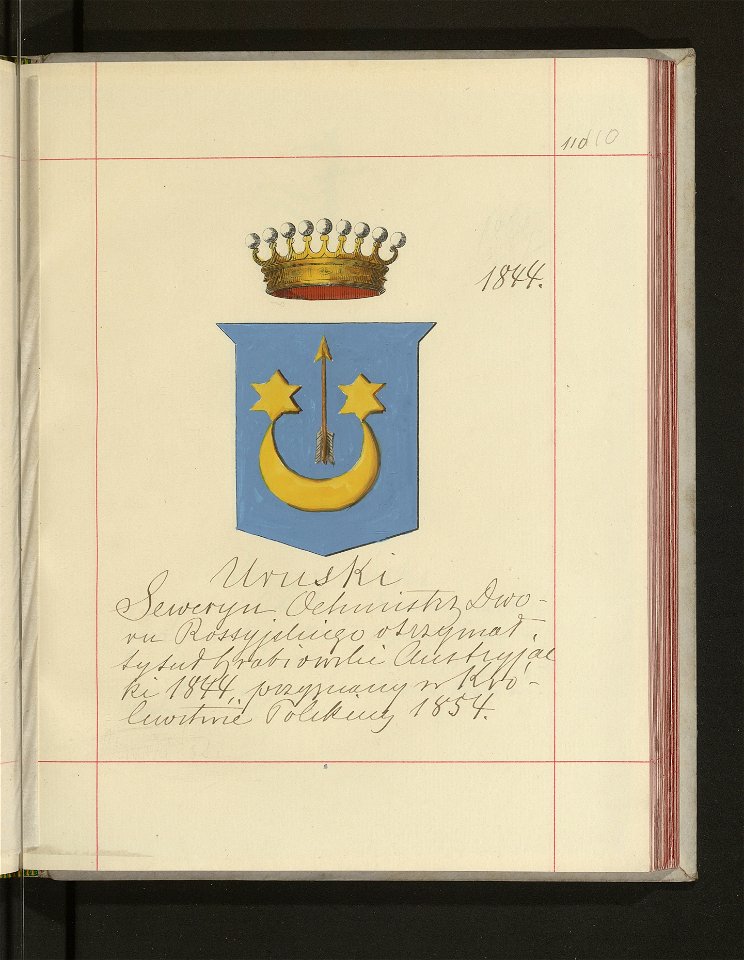 110 110
1844.
Uruski
Seweryn Ochmistrz Dwo-
ru Rossyjskiego otrzymał
tytuł hrabiowski Austryjac
ki 1844, przyznany w Kró-
lewstwie Polskiem 1854.